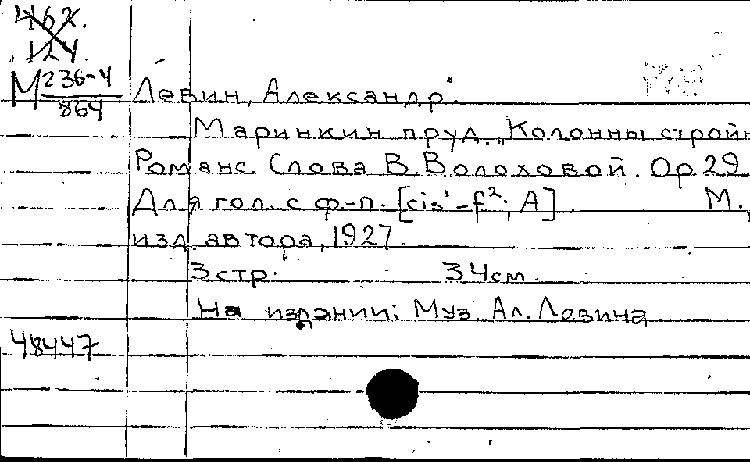 462.
M 236-4
864
Левин, Александр.
Маринкин пруд. „Колонны строй
Романс. Слова В. Волоховой. Op. 29
Для гол. с ф-п. [cis¹-f²; A] М.,
изд. автора, 1927.
3 стр. 34 см.
На издании: Муз. Ал. Левина
48447